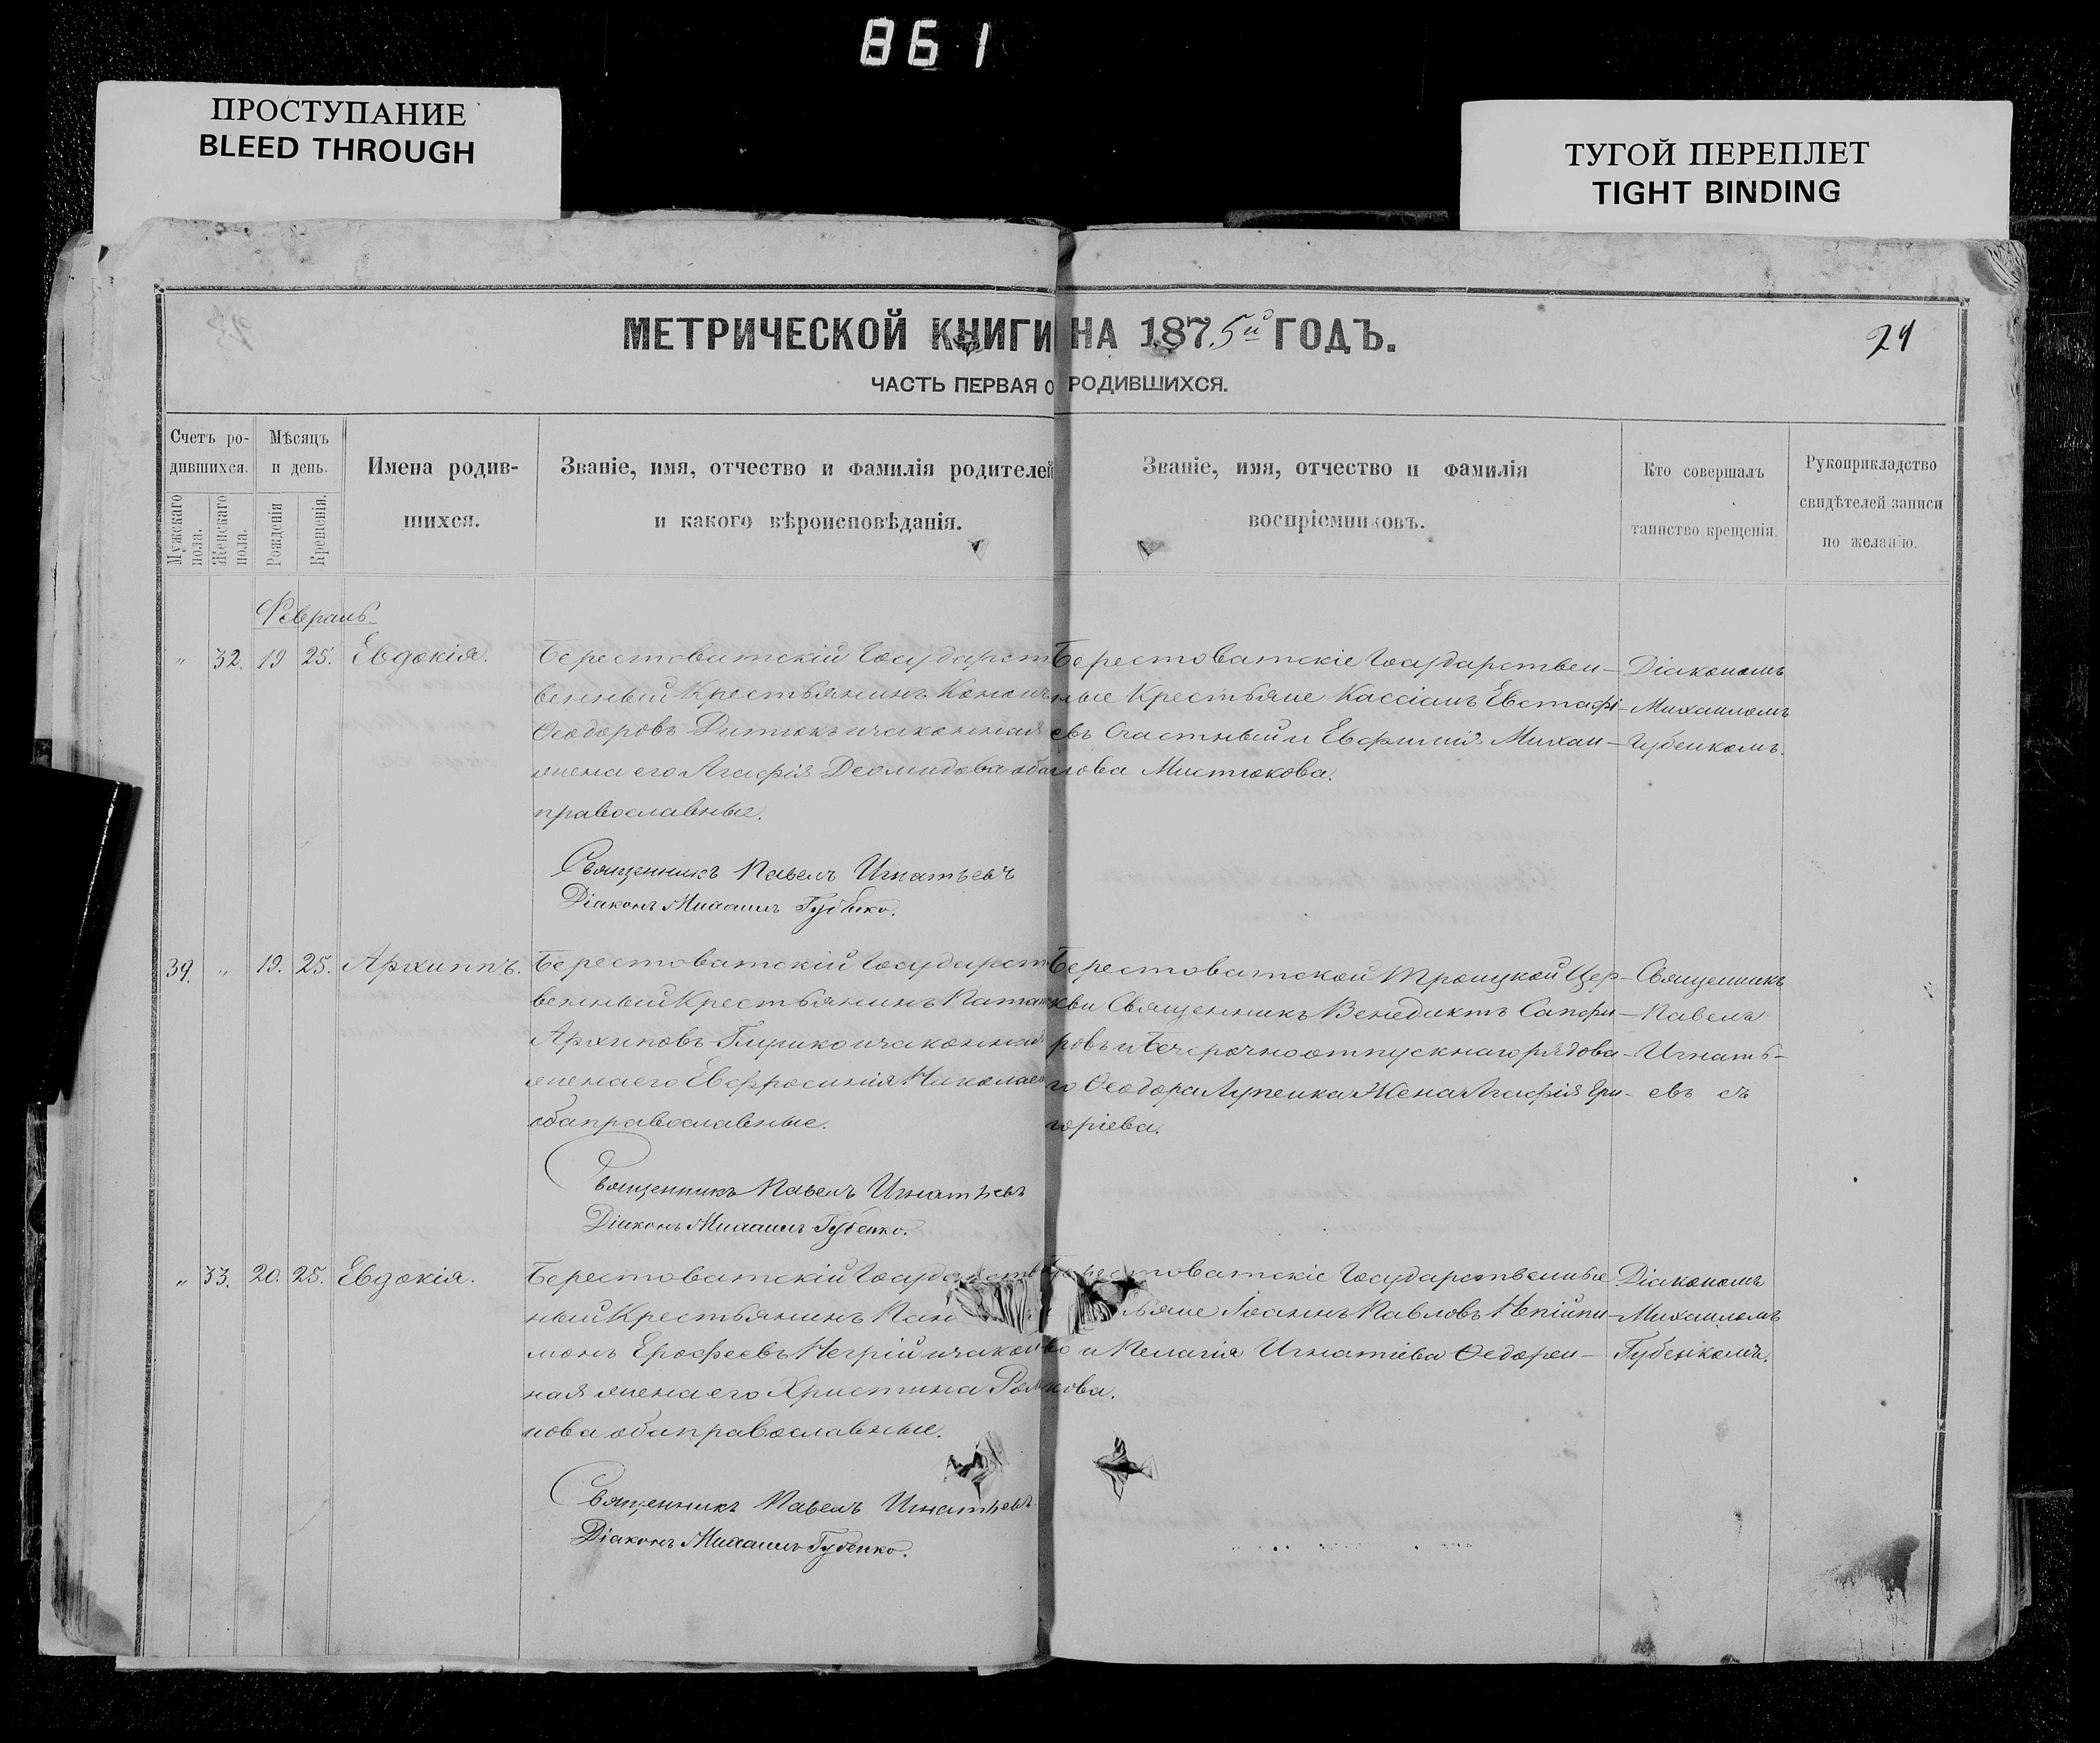 861
ПРОСТУПАНИЕ
BLEED THROUGH
ТУГОЙ ПЕРЕПЛЕТ
TIGHT BINDING
МЕТРИЧЕСКОЙ КНИГИ НА 1875й ГОДЪ.
21
ЧАСТЬ ПЕРВАЯ О РОДИВШИХСЯ.
Счетъ ро-
дившихся.
Мужскаго
пола.
Женскаго
пола.
Мѣсяцъ
и день.
Рожденія
Крещенія.
Имена родив-
шихся.
Званіе, имя, отчество и фамилія родителей
и какого вѣроисповѣданія.
Званіе, имя, отчество и фамилія
воспріемниковъ.
Кто совершалъ
таинство крещенія.
Рукоприкладство
свидѣтелей записи
по желанію.
Февраль
„ 32. 19 25. Евдокія.
Берестоватскій Государст
венный Крестьянинъ
Ѳеодоровъ изаконная
жена его Агафія Деомидова оба
православные.
Священникъ Павелъ Игнатьевъ
Діаконъ Михаилъ Губенко.
Берестоватскіе Государствен-
ные Крестьяне Кассіанъ Евстафі-
евъ Счастный и Евфимія Михаи-
лова Мистюкова.
Діакономъ
Михаиломъ
Губенкомъ.
39. „ 19. 25. Архиппъ.
Берестоватскій Государст
венный Крестьянинъ
Архиповъ изаконная
жена его Евфросинія Николаев
оба православные.
Священникъ Павелъ Игнатьевъ
Діаконъ Михаилъ Губенко.
Берестоватской Троицкой Цер-
кви Священникъ Венедиктъ Сапфи-
ровъ и рядова-
го Ѳеодора Лупенка Жена Агафія Гри-
горіева.
Священникъ
Павелъ
Игнать-
евъ съ
„ 33. 20. 25. Евдокія.
Берестоватскій Государствен
ный Крестьянинъ Пан
монъ Ерофеевъ Негрій изакон
ная жена его Христина Рома
нова оба православные.
Священникъ Павелъ Игнатьевъ.
Діаконъ Михаилъ Губенко.
Берестоватскіе Государственные
ьяне Іоаннъ Павловъ Непійпи-
во и Пелагія Игнатіева Ѳедорен-
кова.
Діакономъ
Михаиломъ
Губенкомъ.